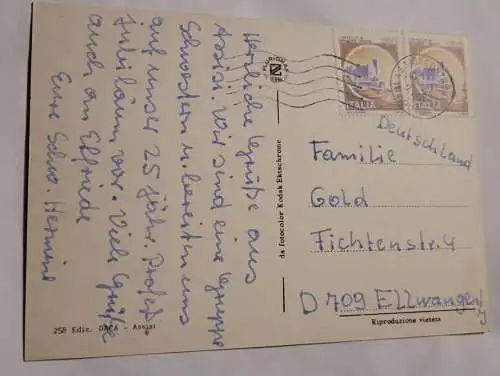 Herzliche Grüße aus
Assisi wir sind eine Gruppe
Schwestern u. bereiten uns
auf unser 25 jähr. Profeß-
Jubiläum vor. Viele Grüße
auch an Elfriede
Eure Schw. Hermine
258 Ediz. DACA - Assisi
da fotocolor Kodak Ektachrome
ITALIA
ITALIA
Deutschland
Familie
Gold
Fichtenstr. 4
D 709 Ellwangen/J
Riproduzione vietata